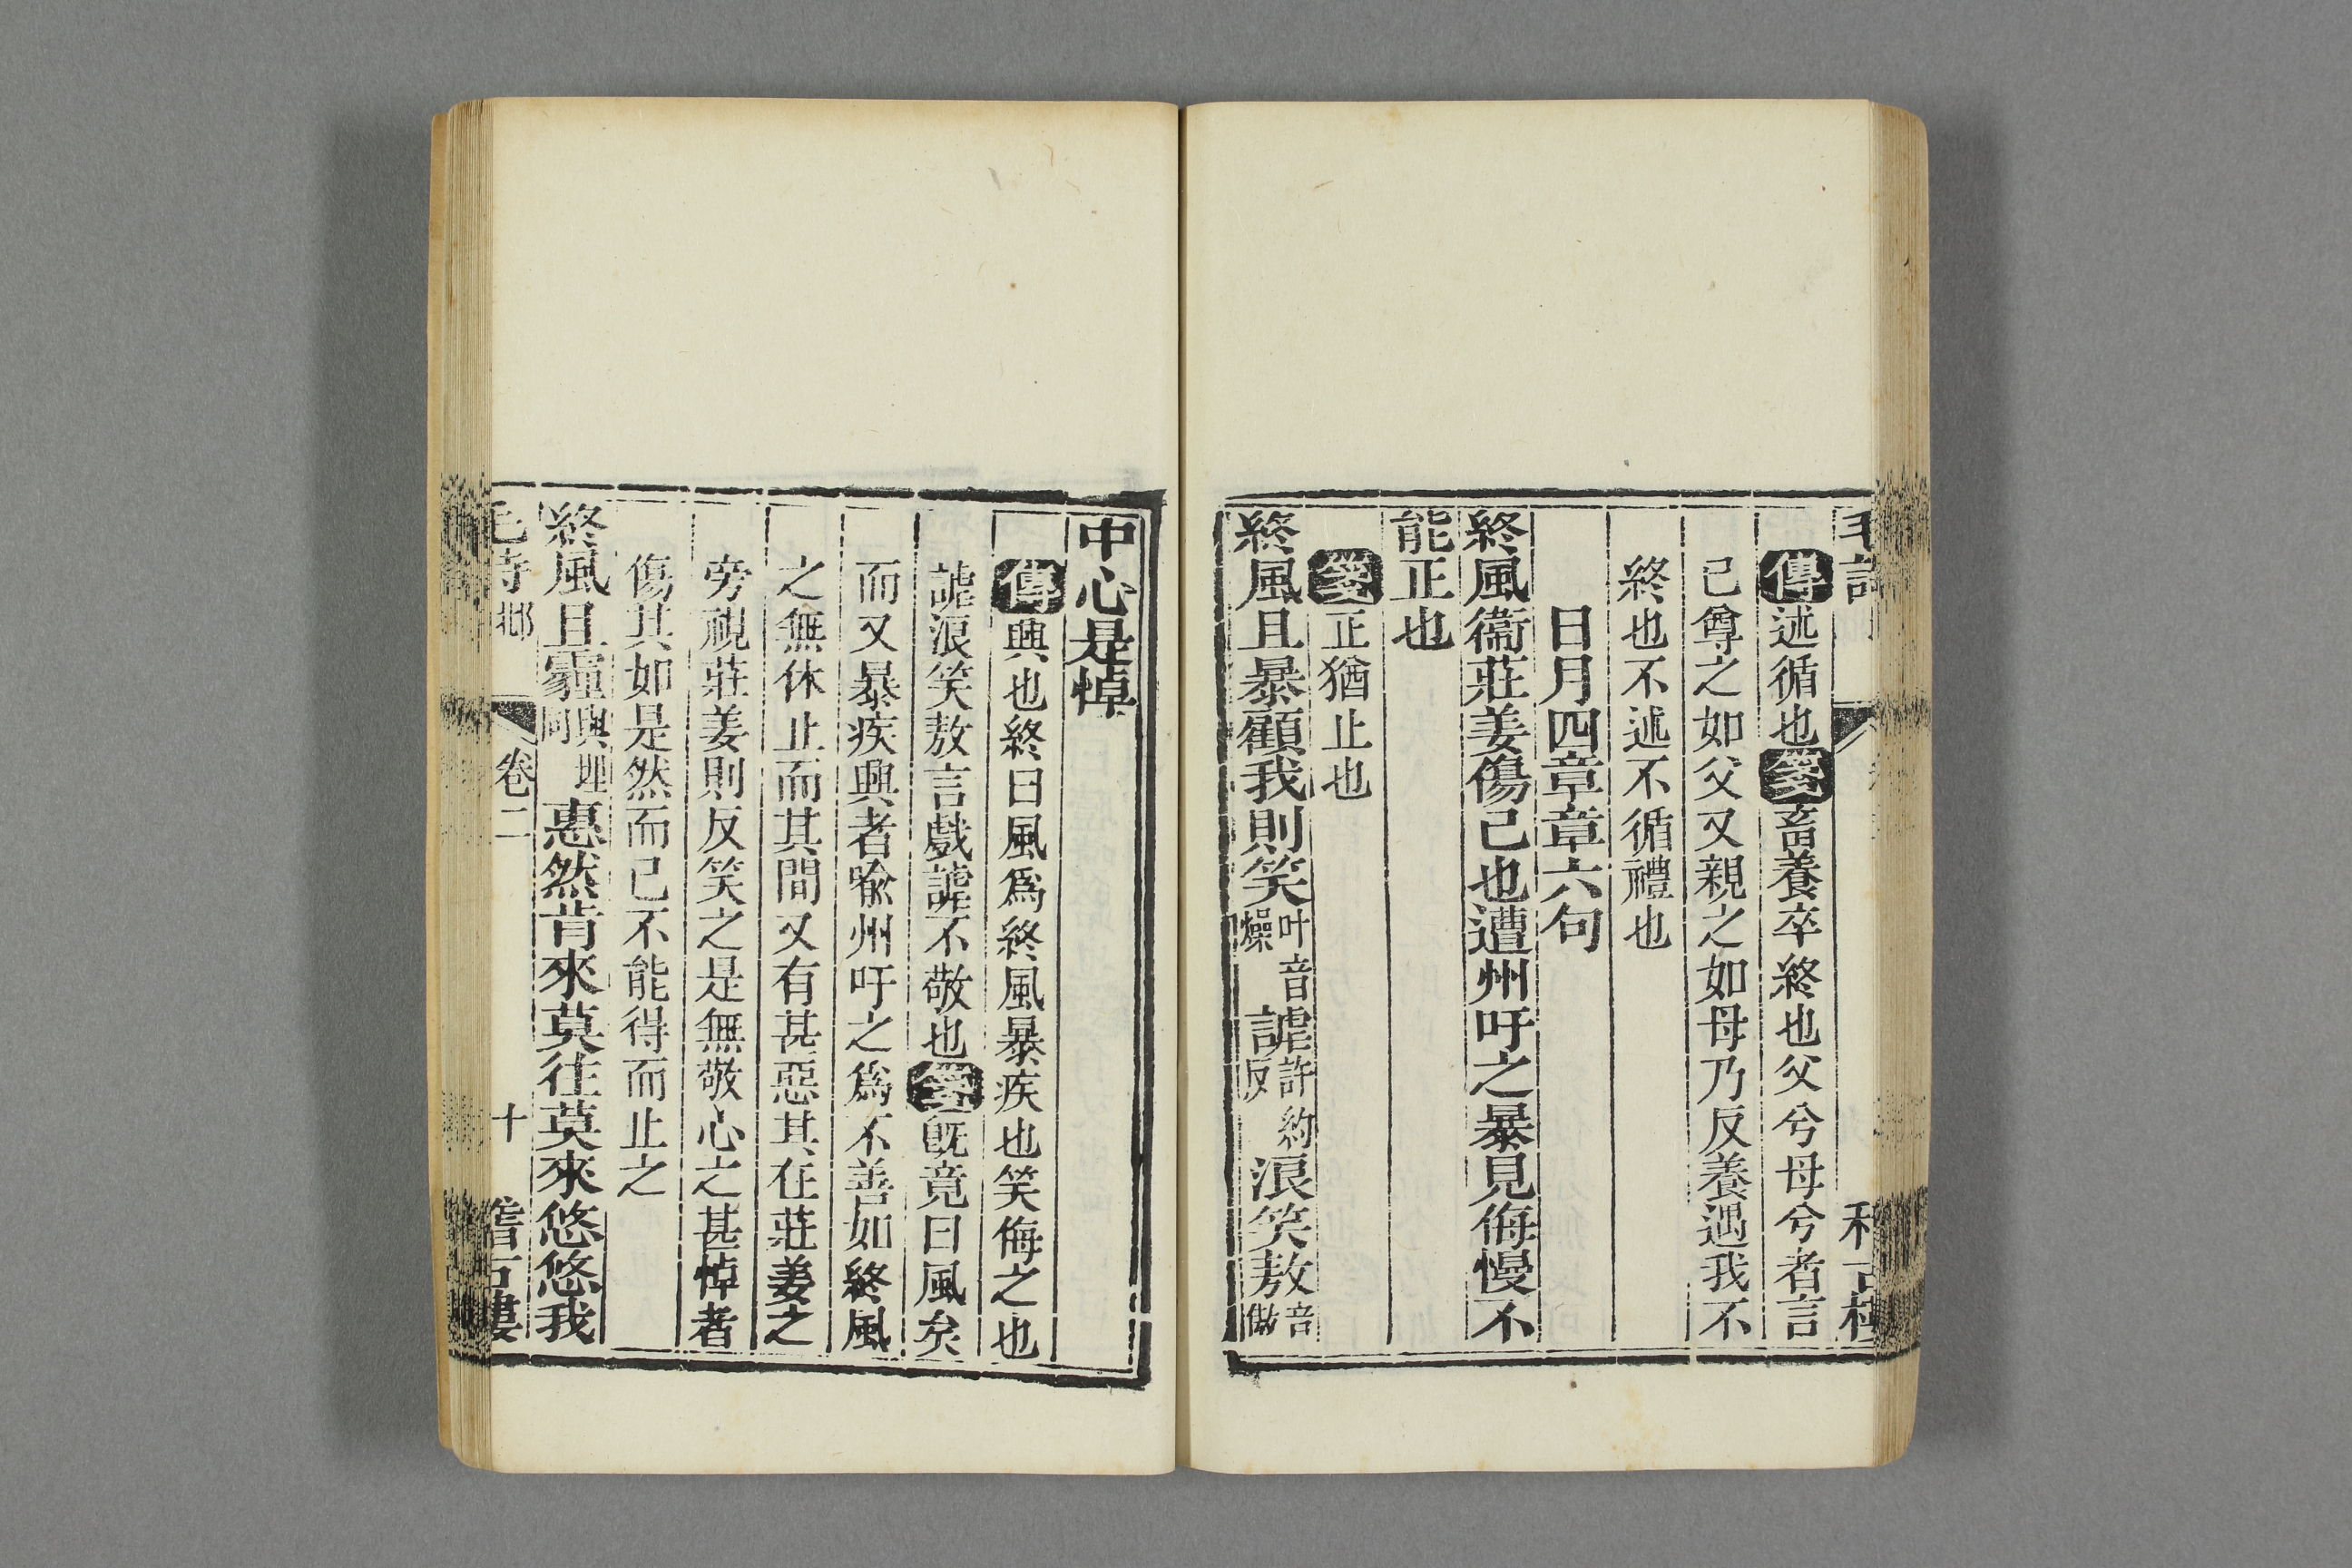 傳述循也箋畜養卒終也父兮母兮者言
己尊之如父又親之如母乃反養遇我不
終也不述不循禮也
日月四章章六句
終風衞莊姜傷己也遭州吁之暴見侮慢不
能正也
箋正猶止也
終風且暴顧我則笑叶音燥謔許約反浪笑敖音傲
中心是悼
傳興也終日風爲終風暴疾也笑侮之也
謔浪笑敖言戲謔不敬也箋旣竟日風矣
而又暴疾興者喻州吁之爲不善如終風
之無休止而其間又有甚惡其在莊姜之
旁視莊姜則反笑之是無敬心之甚悼者
傷其如是然而已不能得而止之
終風且霾與埋同惠然肯來莫往莫來悠悠我
毛詩 邶 卷二 十